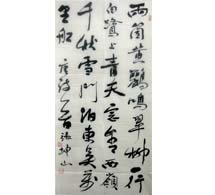 兩箇黃鸝鳴翠柳一行
白鷺上青天窗含西嶺
千秋雪門泊東吳萬
里船 唐詩一首 張坤山